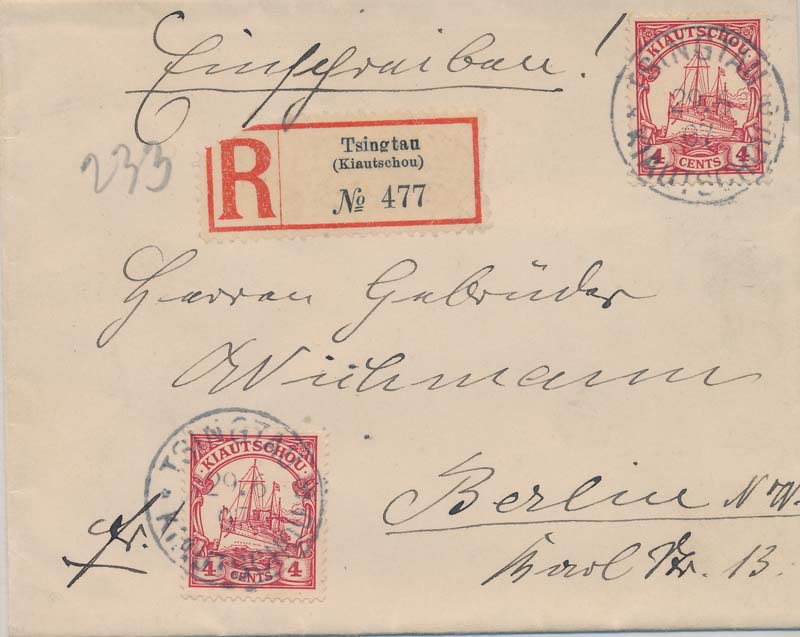 Einschreiben!
KIAUTSCHOU
4 CENTS 4
TSINGTAU
KIAUTSCHOU
29
07
233
R
Tsingtau
(Kiautschou)
No 477
Herren Gebrüder
Berlin N.W.
Karl Str. 13.
Fr.!
KIAUTSCHOU
4 CENTS 4
TSINGTAU
KIAUTSCHOU
29